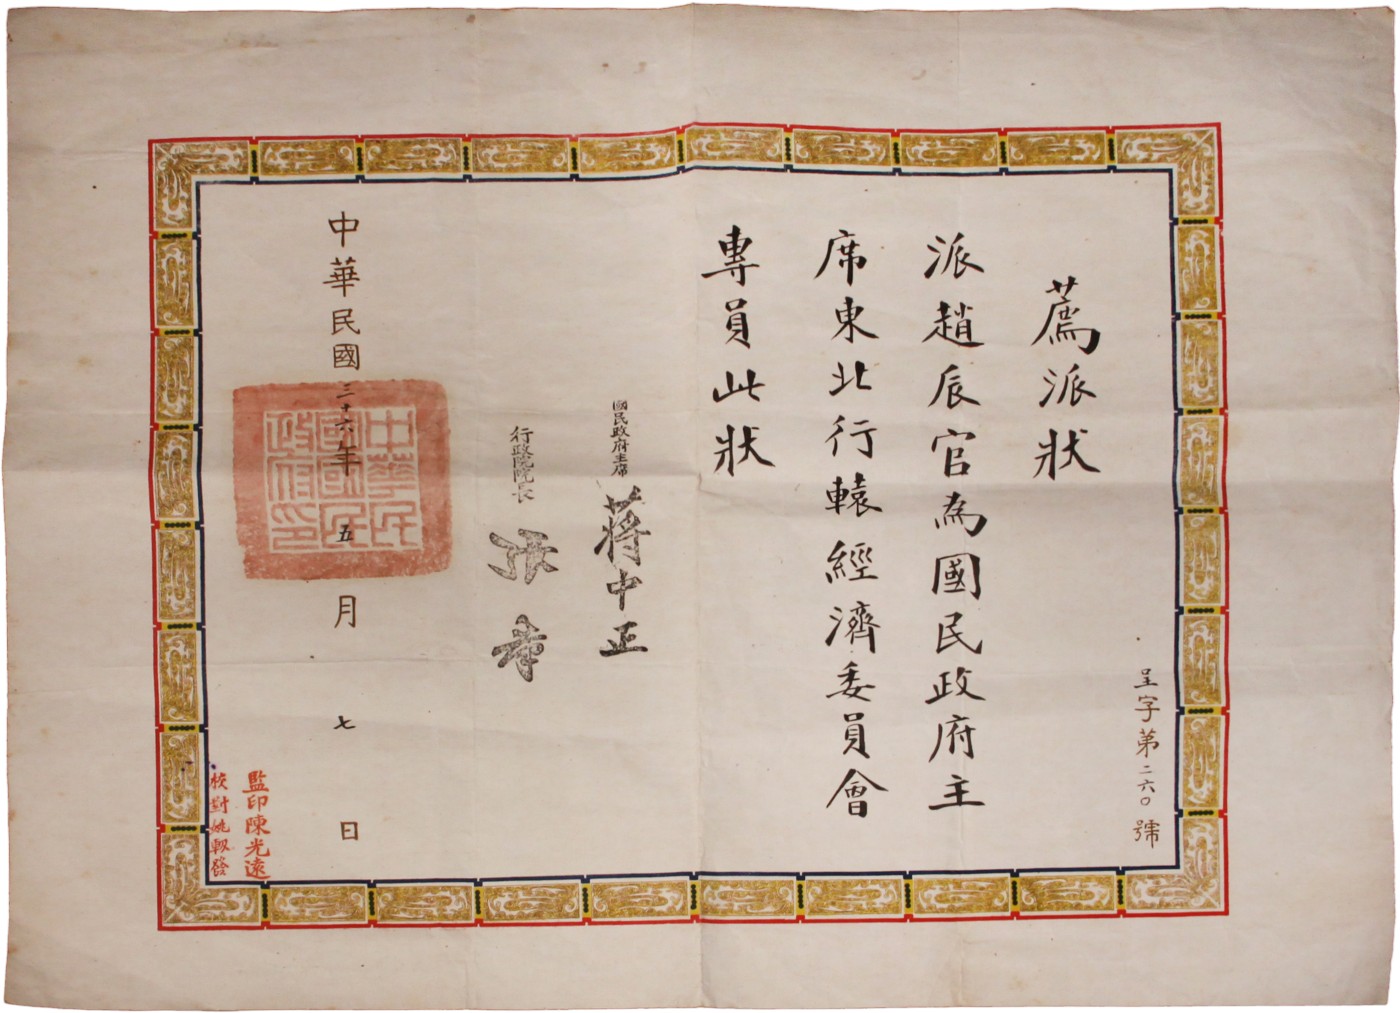 薦派狀
呈字第二六〇號
派趙辰官為國民政府主
席東北行轅經濟委員會
專員此狀
國民政府主席 蔣中正
行政院院長 張羣
中華民國三十六年五月七日
中華民國國民政府印
監印陳光遠
校對姚軔發